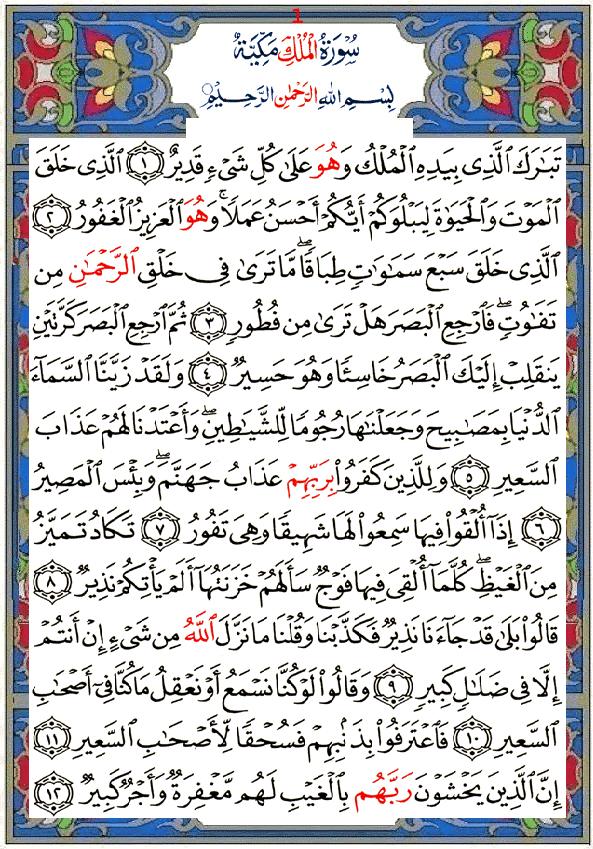 1
سُورَةُ المُلْكِ مَكِّيَّة
بِسْمِ اللهِ الرَّحْمٰنِ الرَّحِيْمِ
تَبَٰرَكَ ٱلَّذِى بِيَدِهِ ٱلْمُلْكُ وَهُوَ عَلَىٰ كُلِّ شَىْءٍ قَدِيرٌ ١ ٱلَّذِى خَلَقَ
ٱلْمَوْتَ وَٱلْحَيَوٰةَ لِيَبْلُوَكُمْ أَيُّكُمْ أَحْسَنُ عَمَلًاۚ وَهُوَ ٱلْعَزِيزُ ٱلْغَفُورُ ٢
ٱلَّذِى خَلَقَ سَبْعَ سَمَٰوَٰتٍ طِبَاقًاۖ مَّا تَرَىٰ فِى خَلْقِ ٱلرَّحْمَٰنِ مِن
تَفَٰوُتٍۖ فَٱرْجِعِ ٱلْبَصَرَ هَلْ تَرَىٰ مِن فُطُورٍ ٣ ثُمَّ ٱرْجِعِ ٱلْبَصَرَ كَرَّتَيْنِ
يَنقَلِبْ إِلَيْكَ ٱلْبَصَرُ خَاسِئًا وَهُوَ حَسِيرٌ ٤ وَلَقَدْ زَيَّنَّا ٱلسَّمَآءَ
ٱلدُّنْيَا بِمَصَٰبِيحَ وَجَعَلْنَٰهَا رُجُومًا لِّلشَّيَٰطِينِۖ وَأَعْتَدْنَا لَهُمْ عَذَابَ
ٱلسَّعِيرِ ٥ وَلِلَّذِينَ كَفَرُوا۟ بِرَبِّهِمْ عَذَابُ جَهَنَّمَۖ وَبِئْسَ ٱلْمَصِيرُ
٦ إِذَآ أُلْقُوا۟ فِيهَا سَمِعُوا۟ لَهَا شَهِيقًا وَهِىَ تَفُورُ ٧ تَكَادُ تَمَيَّزُ
مِنَ ٱلْغَيْظِۖ كُلَّمَآ أُلْقِىَ فِيهَا فَوْجٌ سَأَلَهُمْ خَزَنَتُهَآ أَلَمْ يَأْتِكُمْ نَذِيرٌ ٨
قَالُوا۟ بَلَىٰ قَدْ جَآءَنَا نَذِيرٌ فَكَذَّبْنَا وَقُلْنَا مَا نَزَّلَ ٱللَّهُ مِن شَىْءٍ إِنْ أَنتُمْ
إِلَّا فِى ضَلَٰلٍ كَبِيرٍ ٩ وَقَالُوا۟ لَوْ كُنَّا نَسْمَعُ أَوْ نَعْقِلُ مَا كُنَّا فِىٓ أَصْحَٰبِ
ٱلسَّعِيرِ ١٠ فَٱعْتَرَفُوا۟ بِذَنۢبِهِمْ فَسُحْقًا لِّأَصْحَٰبِ ٱلسَّعِيرِ ١١
إِنَّ ٱلَّذِينَ يَخْشَوْنَ رَبَّهُم بِٱلْغَيْبِ لَهُم مَّغْفِرَةٌ وَأَجْرٌ كَبِيرٌ ١٢